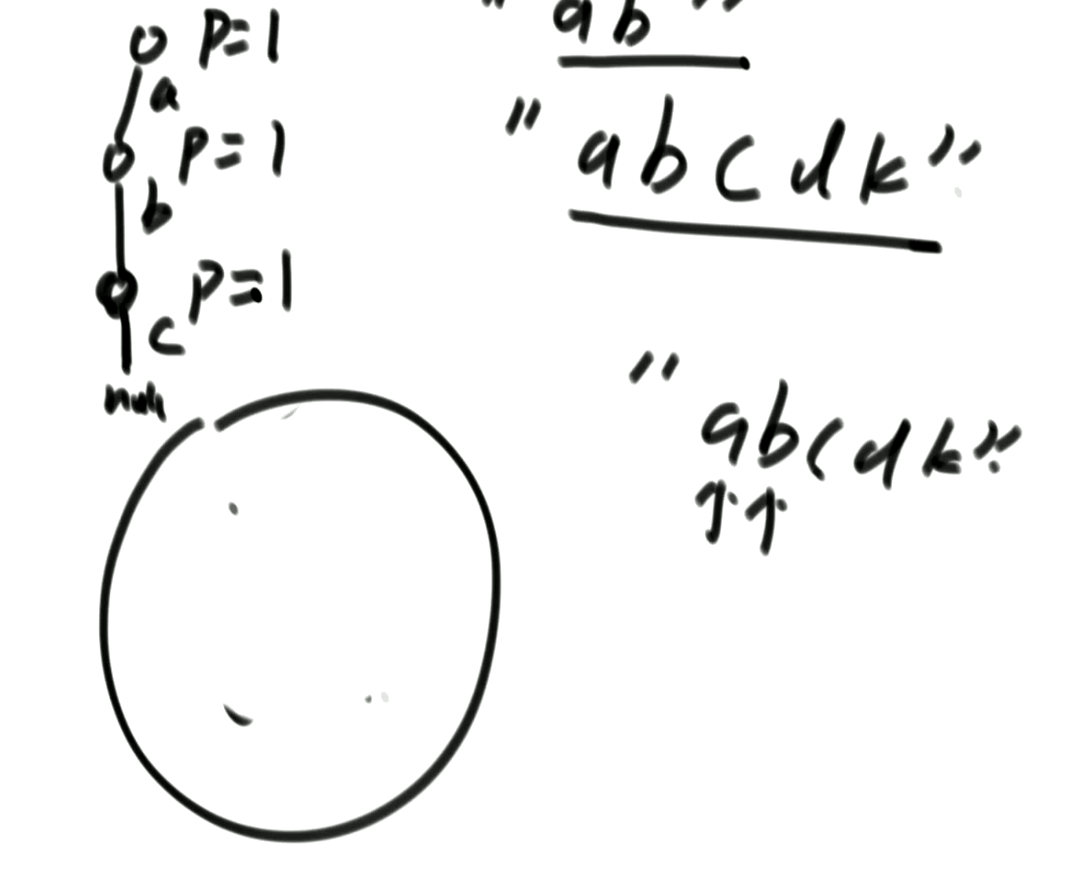 p=1
a
p=1
b
p=1
c
null
"ab"
"abcdk"
"abcdk"
↑↑